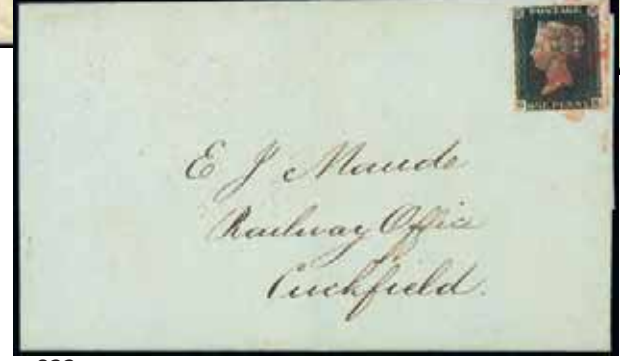 POSTAGE
ONE PENNY
E J Maude
Railway Office
Cuckfield.